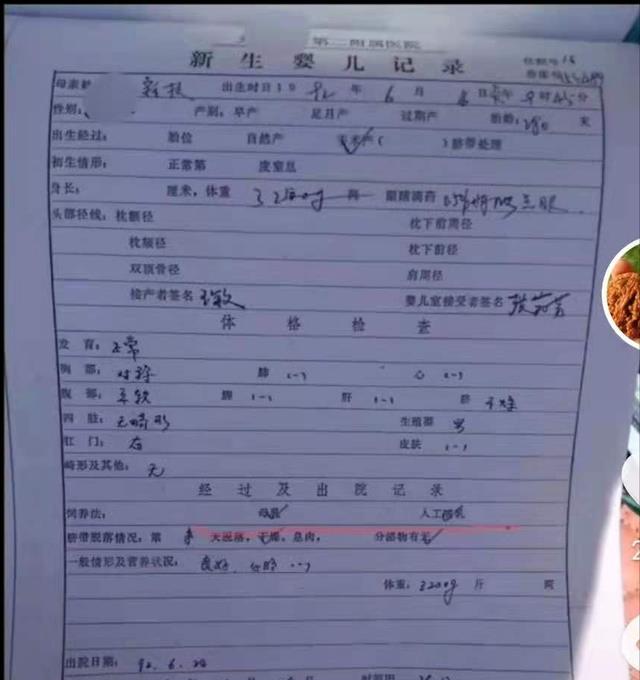 第二附属医院
新生婴儿记录
母亲姓 出生时日19 92 年 6 月 8 日 午 时45分
性别: 产别:早产 足月产 过期产 胎龄: 280 天
出生经过: 胎位 自然产 手术产( )脐带处理
初生情形: 正常第 度窒息
身长: 厘米,体重 3250g 两 眼睛滴药 点眼
头部径线:枕额径 枕下前周径
枕颏径 枕下前径
双顶骨径 肩周径
接产者签名 王敏 婴儿室接受者签名
体格检查
发育: 正常
胸部: 对称 肺 (-) 心 (-)
腹部: 平软 脾 (-) 肝 (-) 脐 干燥
四肢: 无畸形 生殖器 男
肛门: 有 皮肤 (-)
畸形及其他: 无
经过及出院记录
饲养法: 母乳 人工哺乳
脐带脱落情况:第 天脱落,干燥,息肉, 分泌物有无
一般情形及营养状况: 良好.
体重: 3200g 斤 两
出院日期: 92.6.